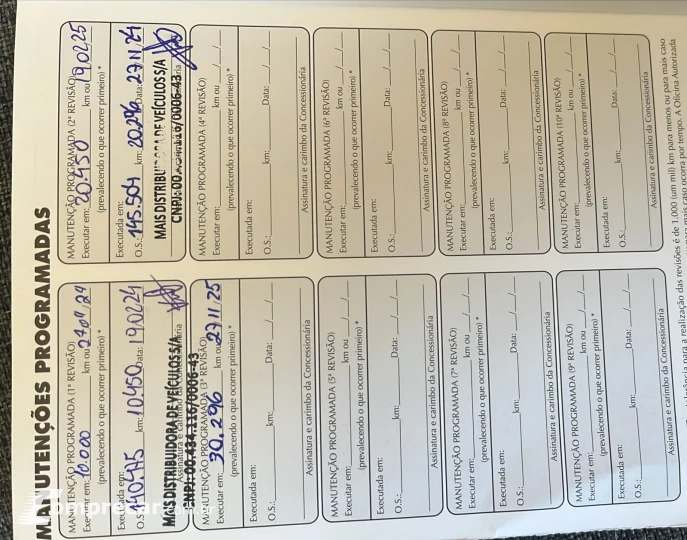 MANUTENÇÕES PROGRAMADAS
MANUTENÇÃO PROGRAMADA (1ª REVISÃO)
Executar em: 10.000 km ou 27/04/24
(prevalecendo o que ocorrer primeiro) *
Executada em:
O.S.: 140.475 km: 10.450 Data: 19/02/24
MAIS DISTRIBUIDORA DE VEÍCULOS S/A
CNPJ: 00.434.116/0006-43
MANUTENÇÃO PROGRAMADA (2ª REVISÃO)
Executar em: 20.450 km ou 19/02/25
(prevalecendo o que ocorrer primeiro) *
Executada em:
O.S.: 145.504 km: 20.296 Data: 27/11/24
MAIS DISTRIBUIDORA DE VEÍCULOS S/A
CNPJ: 00. 116/0006-43
MANUTENÇÃO PROGRAMADA (3ª REVISÃO)
Executar em: 30.296 km ou 27/11/25
(prevalecendo o que ocorrer primeiro) *
Executada em:
O.S.: km: Data: / /
Assinatura e carimbo da Concessionária
MANUTENÇÃO PROGRAMADA (4ª REVISÃO)
Executar em: km ou / /
(prevalecendo o que ocorrer primeiro) *
Executada em:
O.S.: km: Data: / /
Assinatura e carimbo da Concessionária
MANUTENÇÃO PROGRAMADA (5ª REVISÃO)
Executar em: km ou / /
(prevalecendo o que ocorrer primeiro) *
Executada em:
O.S.: km: Data: / /
Assinatura e carimbo da Concessionária
MANUTENÇÃO PROGRAMADA (6ª REVISÃO)
Executar em: km ou / /
(prevalecendo o que ocorrer primeiro) *
Executada em:
O.S.: km: Data: / /
Assinatura e carimbo da Concessionária
MANUTENÇÃO PROGRAMADA (7ª REVISÃO)
Executar em: km ou / /
(prevalecendo o que ocorrer primeiro) *
Executada em:
O.S.: km: Data: / /
Assinatura e carimbo da Concessionária
MANUTENÇÃO PROGRAMADA (8ª REVISÃO)
Executar em: km ou / /
(prevalecendo o que ocorrer primeiro) *
Executada em:
O.S.: km: Data: / /
Assinatura e carimbo da Concessionária
MANUTENÇÃO PROGRAMADA (9ª REVISÃO)
Executar em: km ou / /
(prevalecendo o que ocorrer primeiro) *
Executada em:
O.S.: km: Data: / /
Assinatura e carimbo da Concessionária
MANUTENÇÃO PROGRAMADA (10ª REVISÃO)
Executar em: km ou / /
(prevalecendo o que ocorrer primeiro) *
Executada em:
O.S.: km: Data: / /
Assinatura e carimbo da Concessionária
para a realização das revisões é de 1.000 (um mil) km para menos ou para mais caso
para mais caso ocorra por tempo. A Oficina Autorizada